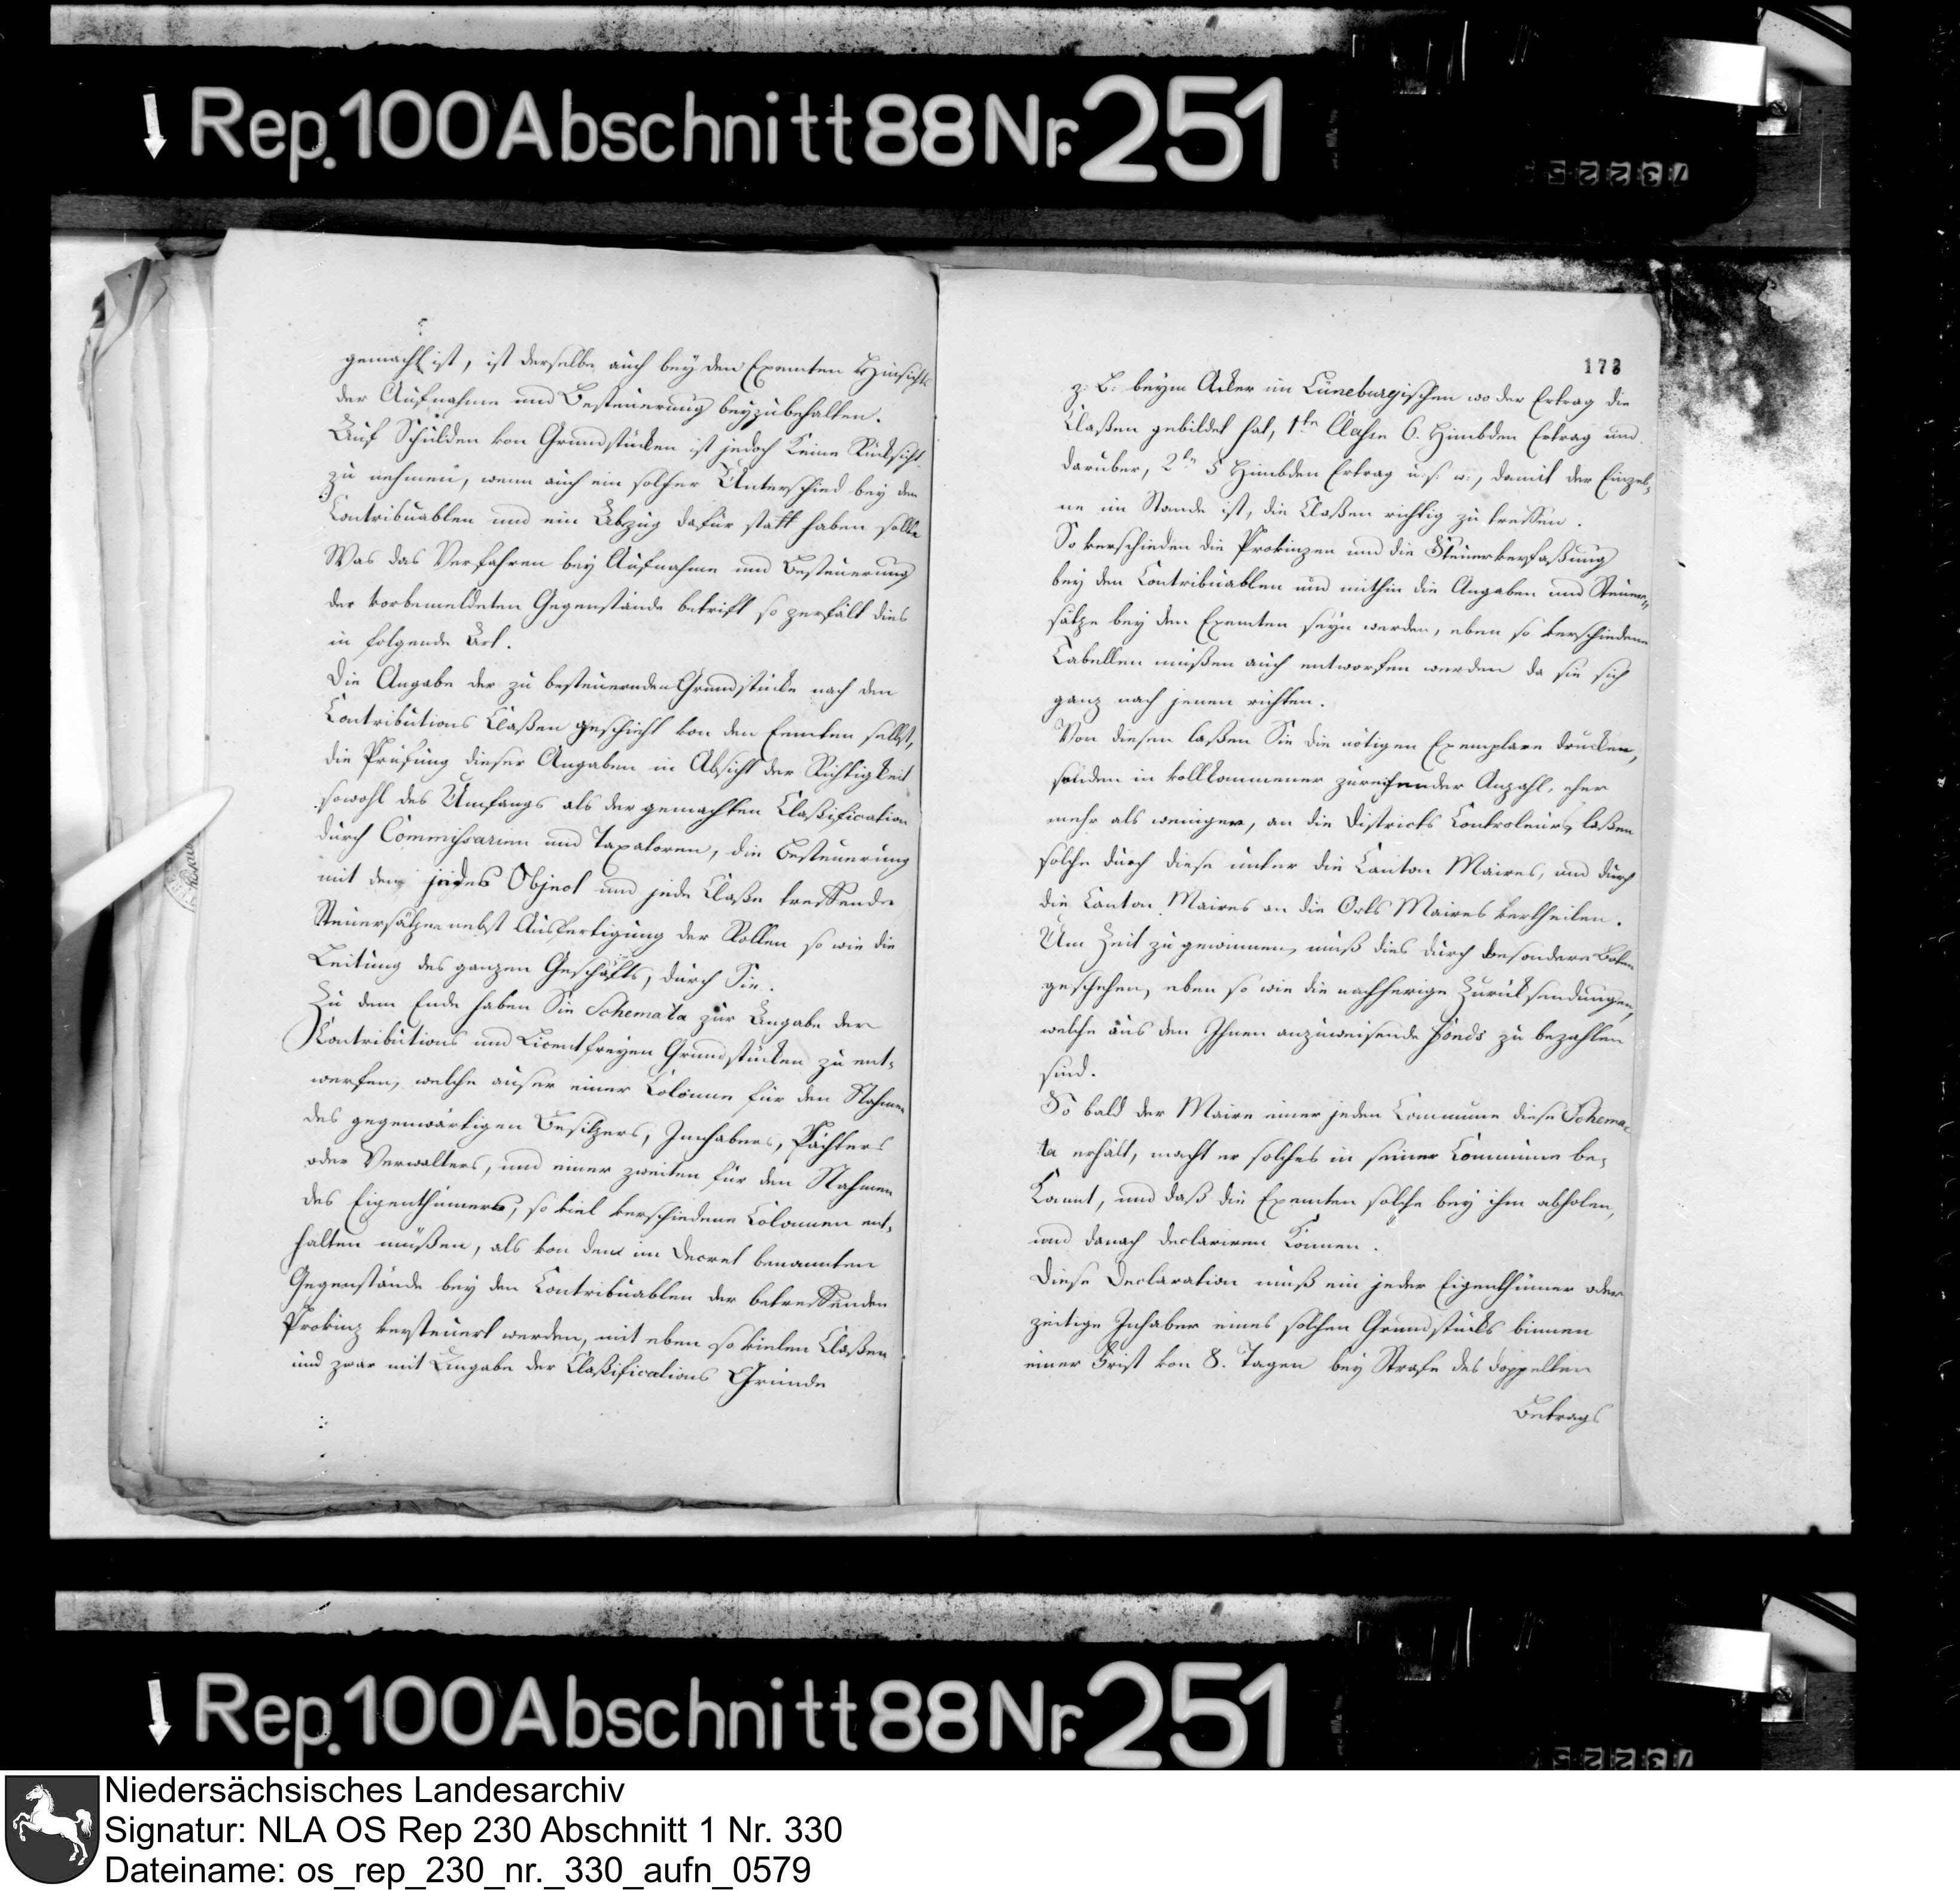 Rep. 100 Abschnitt 88 Nr. 251
gemacht ist, ist derselbe auch bey den Exemten Hinsichts
der Aufnahme und Besteuerung beyzubehalten.
Auf Schulden von Grundstücken ist jedoch keine Rücksicht
zu nehmen, wenn auch ein solcher Unterschied bey den
Contribuablen und ein Abzug dafür statt haben sollte
Was das Verfahren bey Aufnahme und Besteuerung
der vorbemeldeten Gegenstände betrift so zerfält dies
in folgende Art.
Die Angabe der zu besteuernden Grundstücke nach den
Contributions Claßen geschieht von den Exemten selbst,
die Prüfung dieser Angaben in Absicht der Richtigkeit
sowohl des Umfangs als der gemachten Claßification
durch Commissarien und Taxatoren, die Besteuerung
mit dem jedes Object und jede Claße treffende
Steuersätzen nebst Ausfertigung der Rollen so wie die
Leitung des ganzen Geschäfts, durch Sie.
Zu dem Ende haben Sie Schemata zur Angabe der
Contributions und Licentfreyen Grundstücken zu ent-
werfen, welche auser einer Colonne für den Nahmen
des gegenwärtigen Besitzers, Innhabers, Pächters
oder Verwalters, und einer zweiten für den Nahmen
des Eigenthümers, so viel verschiedene Colonnen ent-
halten müßen, als von den im Decret benannten
Gegenstände bey den Contribuablen der betreffenden
Provinz versteuert werden, mit eben so vielen Claßen
und zwar mit Angabe der Claßifications Gründe
173
z. B. beym Acker im Lüneburgischen wo der Ertrag die
Claßen gebildet hat, 1te Classe 6. Himbden Ertrag und
darüber, 2te 5 Himbden Ertrag u. s. w., damit der Einzel-
ne im Stande ist, die Claßen richtig zu treffen.
So verschieden die Provinzen und die Steuerverfaßung
bey den Contribuablen und mithin die Angaben und Steuer-
sätze bey den Exemten seyn werden, eben so verschiedene
Tabellen müßen auch entworfen werden da sie sich
ganz nach jenen richten.
Von diesen laßen Sie die nötigen Exemplare drucken,
senden in vollkommener zureichender Anzahl, eher
mehr als weniger, an die Districts Controleurs, laßen
solche durch diese unter die Canton Maires, und durch
die Canton Maires an die Orts Maires vertheilen.
Um Zeit zu gewinnen, muß dies durch besondere Boten
geschehen, eben so wie die nachherige Zurücksendungen,
welche aus den Ihnen anzuweisende Fonds zu bezahlen
sind.
So bald der Maire einer jeden Commune diese Schema-
ta erhält, macht er solches in seiner Commune be-
kannt, und daß die Exemten solche bey ihm abholen,
und danach declariren können.
Diese Declaration muß ein jeder Eigenthümer oder
zeitige Inhaber eines solchen Grundstücks binnen
einer Frist von 8. Tagen bey Strafe des doppelten
Betrags
Rep. 100 Abschnitt 88 Nr. 251
Niedersächsisches Landesarchiv
Signatur: NLA OS Rep 230 Abschnitt 1 Nr. 330
Dateiname: os_rep_230_nr._330_aufn_0579